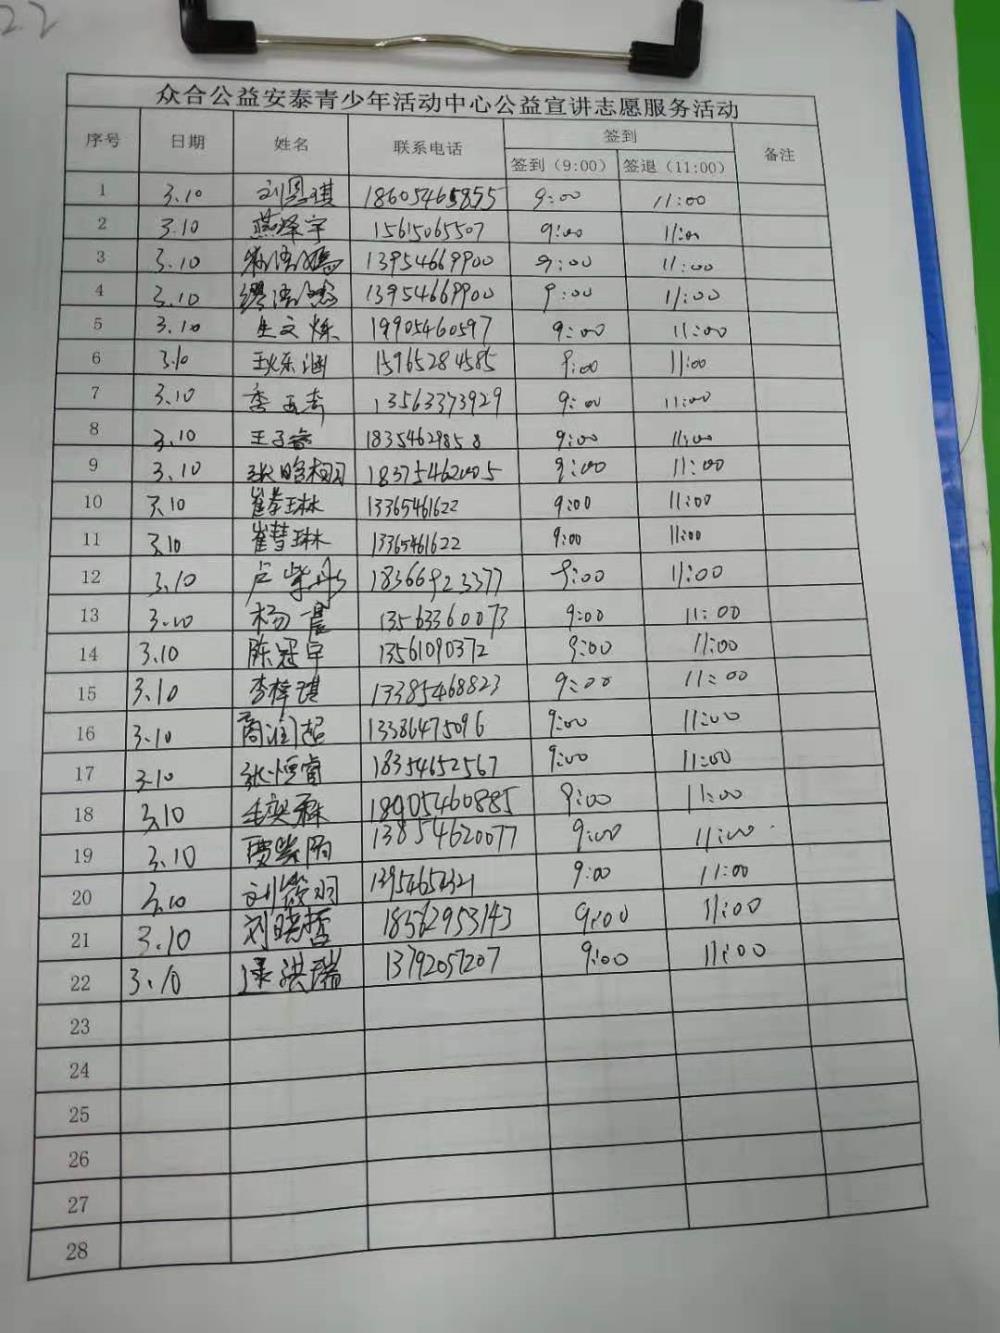 22
众合公益安泰青少年活动中心公益宣讲志愿服务活动
序号 日期 姓名 联系电话 签到 备注
签到（9:00） 签退（11:00）
1 3.10 刘恩琪 18605465855 9:00 11:00
2 3.10 燕泽宇 15615065507 9:00 11:00
3 3.10 13954669900 9:00 11:00
4 3.10 13954669900 9:00 11:00
5 3.10 19905460597 9:00 11:00
6 3.10 15965284585 9:00 11:00
7 3.10 13563373929 9:00 11:00
8 3.10 王子睿 18354629858 9:00 11:00
9 3.10 9:00 11:00
10 3.10 13365461622 9:00 11:00
11 3.10 崔慧琳 13365461622 9:00 11:00
12 3.10 卢紫彤 18366923377 9:00 11:00
13 3.10 13563360073 9:00 11:00
14 3.10 陈冠宇 13561090372 9:00 11:00
15 3.10 李梓琪 13385468823 9:00 11:00
16 3.10 商润超 13386475096 9:00 11:00
17 3.10 张恒睿 18354652567 9:00 11:00
18 3.10 18905460885 9:00 11:00
19 3.10 贾紫雨 13854620077 9:00 11:00
20 3.10 9:00 11:00
21 3.10 刘晓哲 18562953143 9:00 11:00
22 3.10 逯洪瑞 13792057207 9:00 11:00
23
24
25
26
27
28